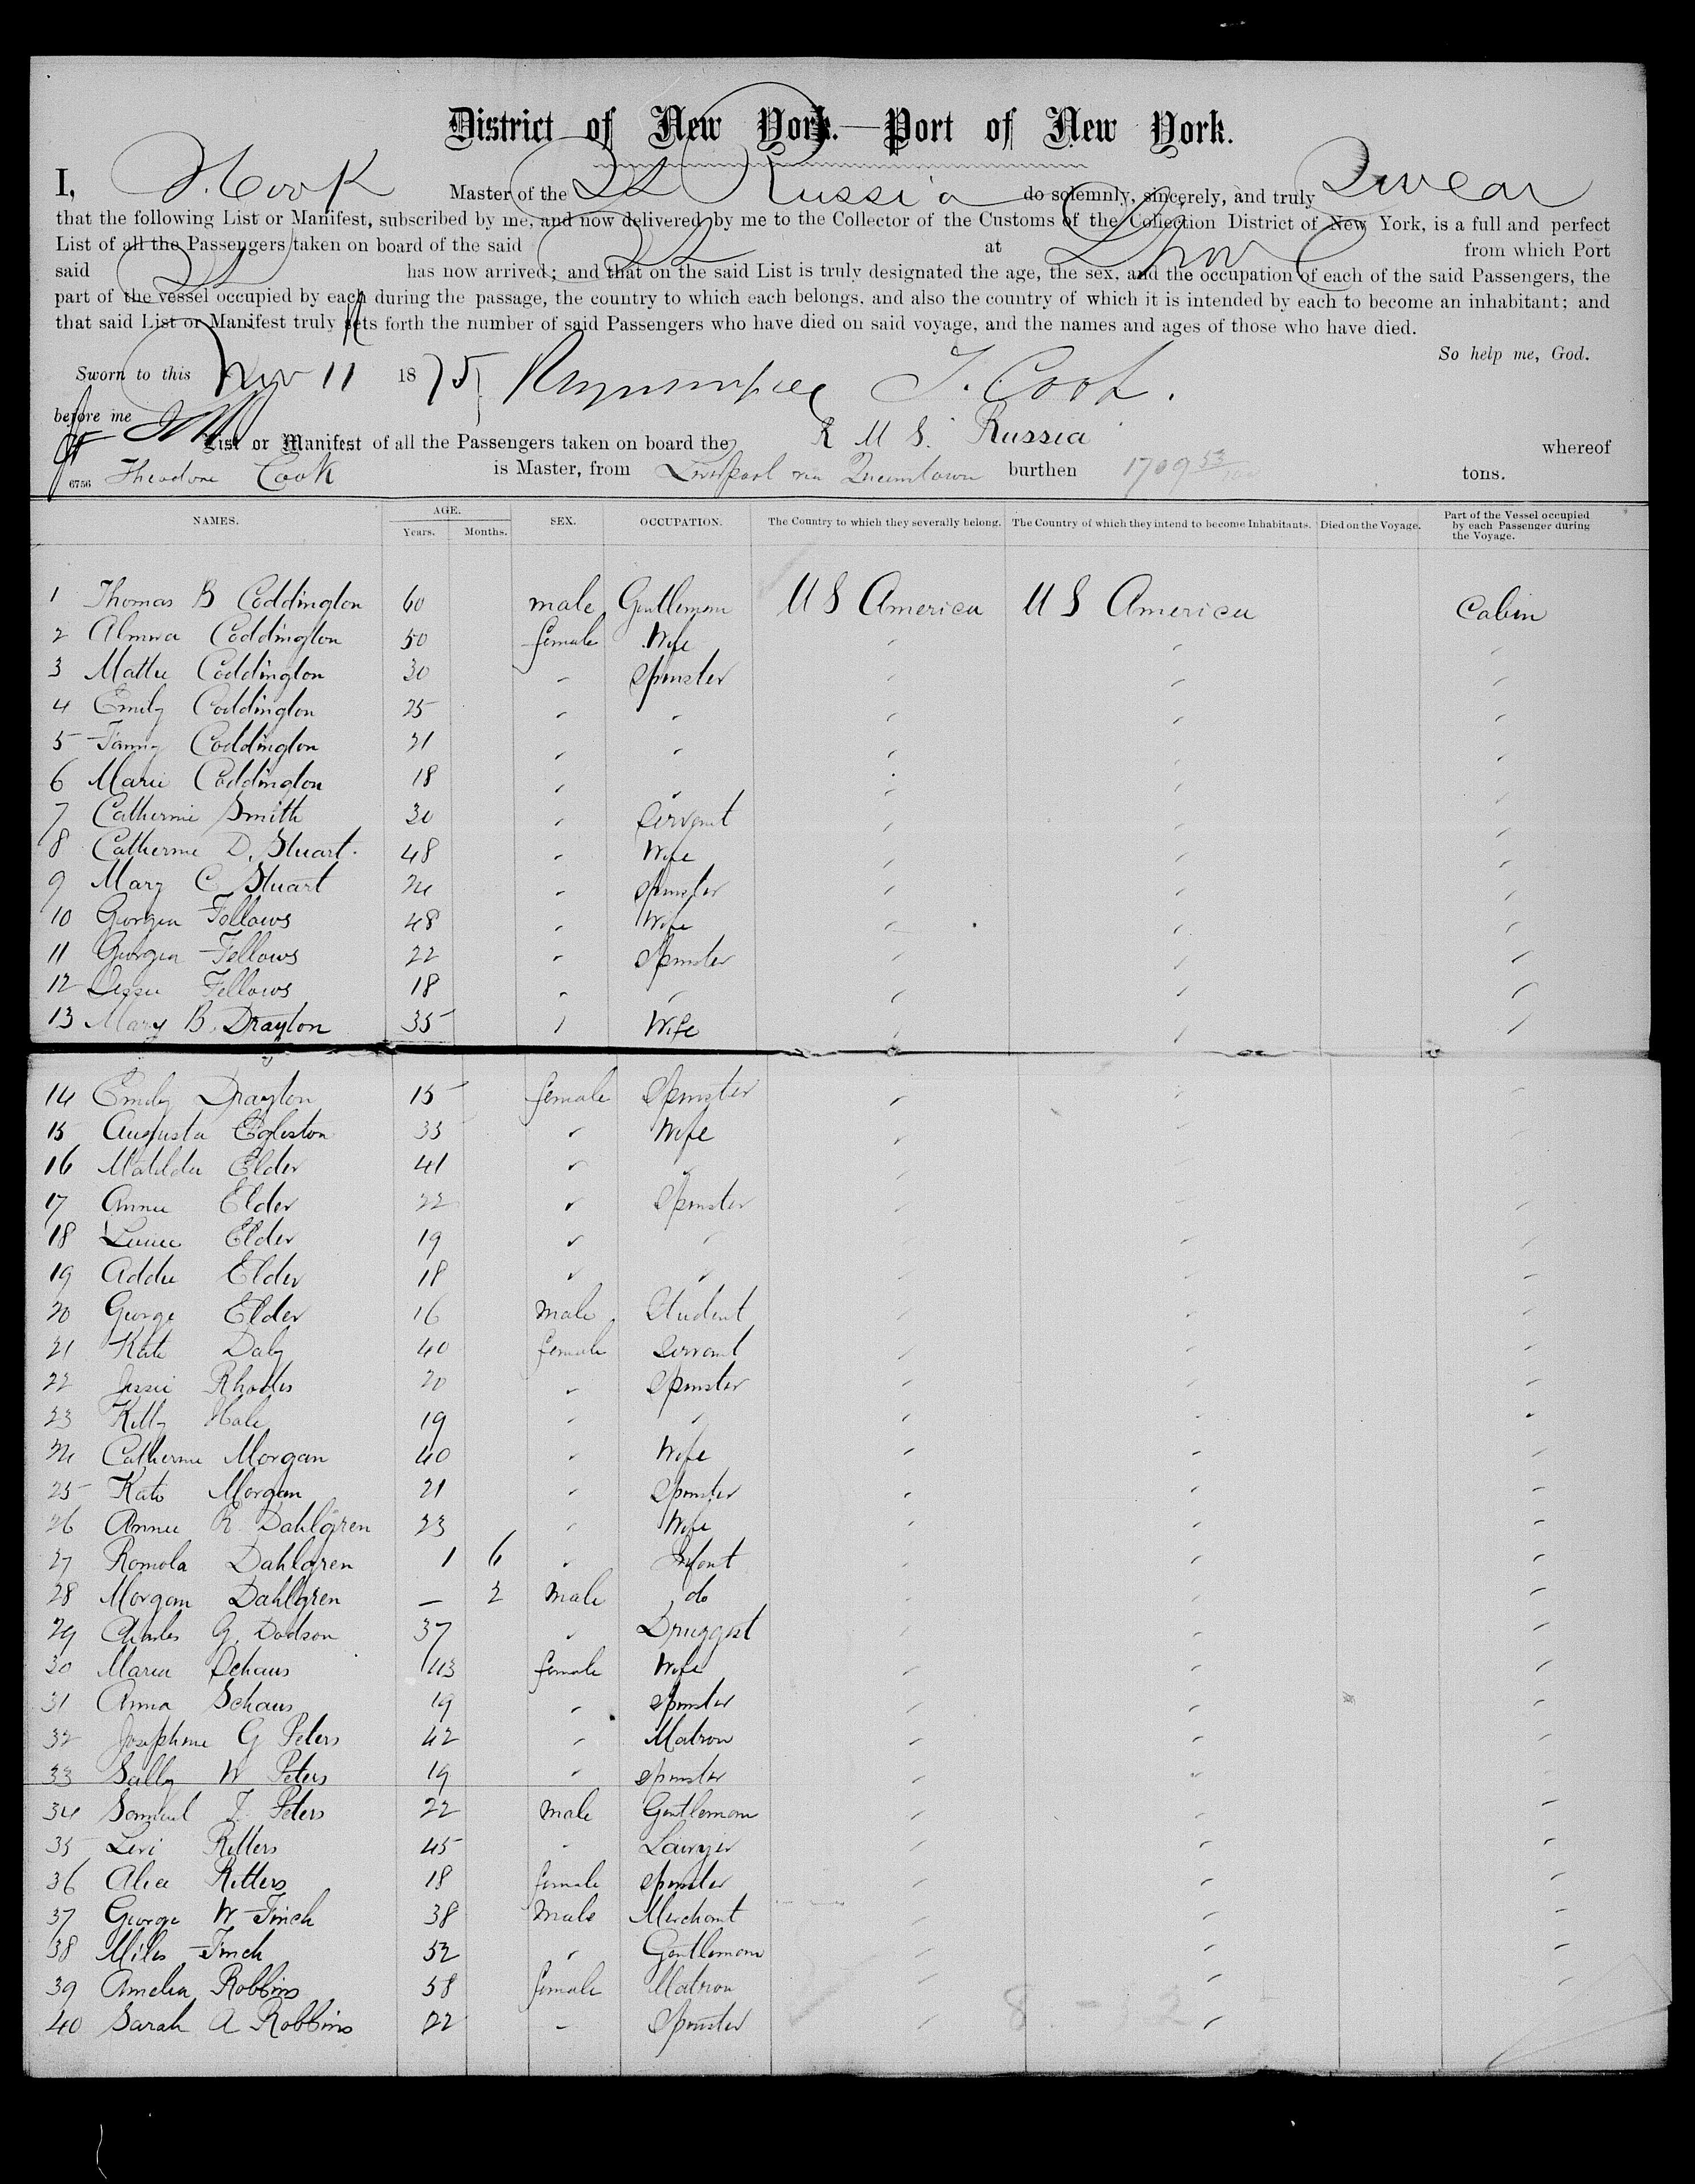 District of New York.—Port of New York.
I, T. Cook Master of the SS Russia do solemnly, sincerely, and truly Swear
that the following List or Manifest, subscribed by me, and now delivered by me to the Collector of the Customs of the Collection District of New York, is a full and perfect
List of all the Passengers taken on board of the said SS at from which Port
said SS has now arrived; and that on the said List is truly designated the age, the sex, and the occupation of each of the said Passengers, the
part of the vessel occupied by each during the passage, the country to which each belongs, and also the country of which it is intended by each to become an inhabitant; and
that said List or Manifest truly sets forth the number of said Passengers who have died on said voyage, and the names and ages of those who have died.
So help me, God.
Sworn to this Nov 11 1875 T. Cook.
before me
List or Manifest of all the Passengers taken on board the R M S. Russia whereof
6756 Theodore Cook is Master, from Liverpool via Queenstown burthen 1709 53/100 tons.
NAMES. AGE. Years. Months. SEX. OCCUPATION. The Country to which they severally belong. The Country of which they intend to become Inhabitants. Died on the Voyage. Part of the Vessel occupied by each Passenger during the Voyage.
1 Thomas B Coddington 60 male Gentleman U S America U S America Cabin
2 Almira Coddington 50 female Wife
3 Mattie Coddington 30 " Spinster
4 Emily Coddington 25 " "
5 Fanny Coddington 21 " "
6 Marie Coddington 18 " "
7 Catherine Smith 30 " Servant
8 Catherine D. Stuart 48 " Wife
9 Mary C Stuart 24 " Spinster
10 Georgia Fellows 48 " Wife
11 Georgia Fellows 22 " Spinster
12 Fellows 18 " "
13 Mary B. Drayton 35 " Wife
14 Emily Drayton 15 female Spinster
15 Augusta Egleston 35 " Wife
16 Matilda Elder 41 " "
17 Annie Elder 22 " Spinster
18 Elder 19 " "
19 Addie Elder 18 " "
20 George Elder 16 male Student
21 Kate Daly 40 female Servant
22 Jessie Rhodes 20 " Spinster
23 Kitty Hale 19 " "
24 Catherine Morgan 40 " Wife
25 Kate Morgan 21 " Spinster
26 Annie R. Dahlgren 23 " Wife
27 Romola Dahlgren 1 6 " Infant
28 Morgan Dahlgren — 2 male do
29 Charles G. Dodson 37 " Druggist
30 Maria Schaus 43 female Wife
31 Anna Schaus 19 " Spinster
32 Josephine G Peters 42 " Matron
33 Sally W Peters 19 " Spinster
34 Samuel T. Peters 22 male Gentleman
35 Levi Ritters 45 " Lawyer
36 Alice Ritters 18 female Spinster
37 George W Finch 38 Male Merchant
38 Miles Finch 52 " Gentleman
39 Amelia Robbins 58 female Matron
40 Sarah A Robbins 22 " Spinster